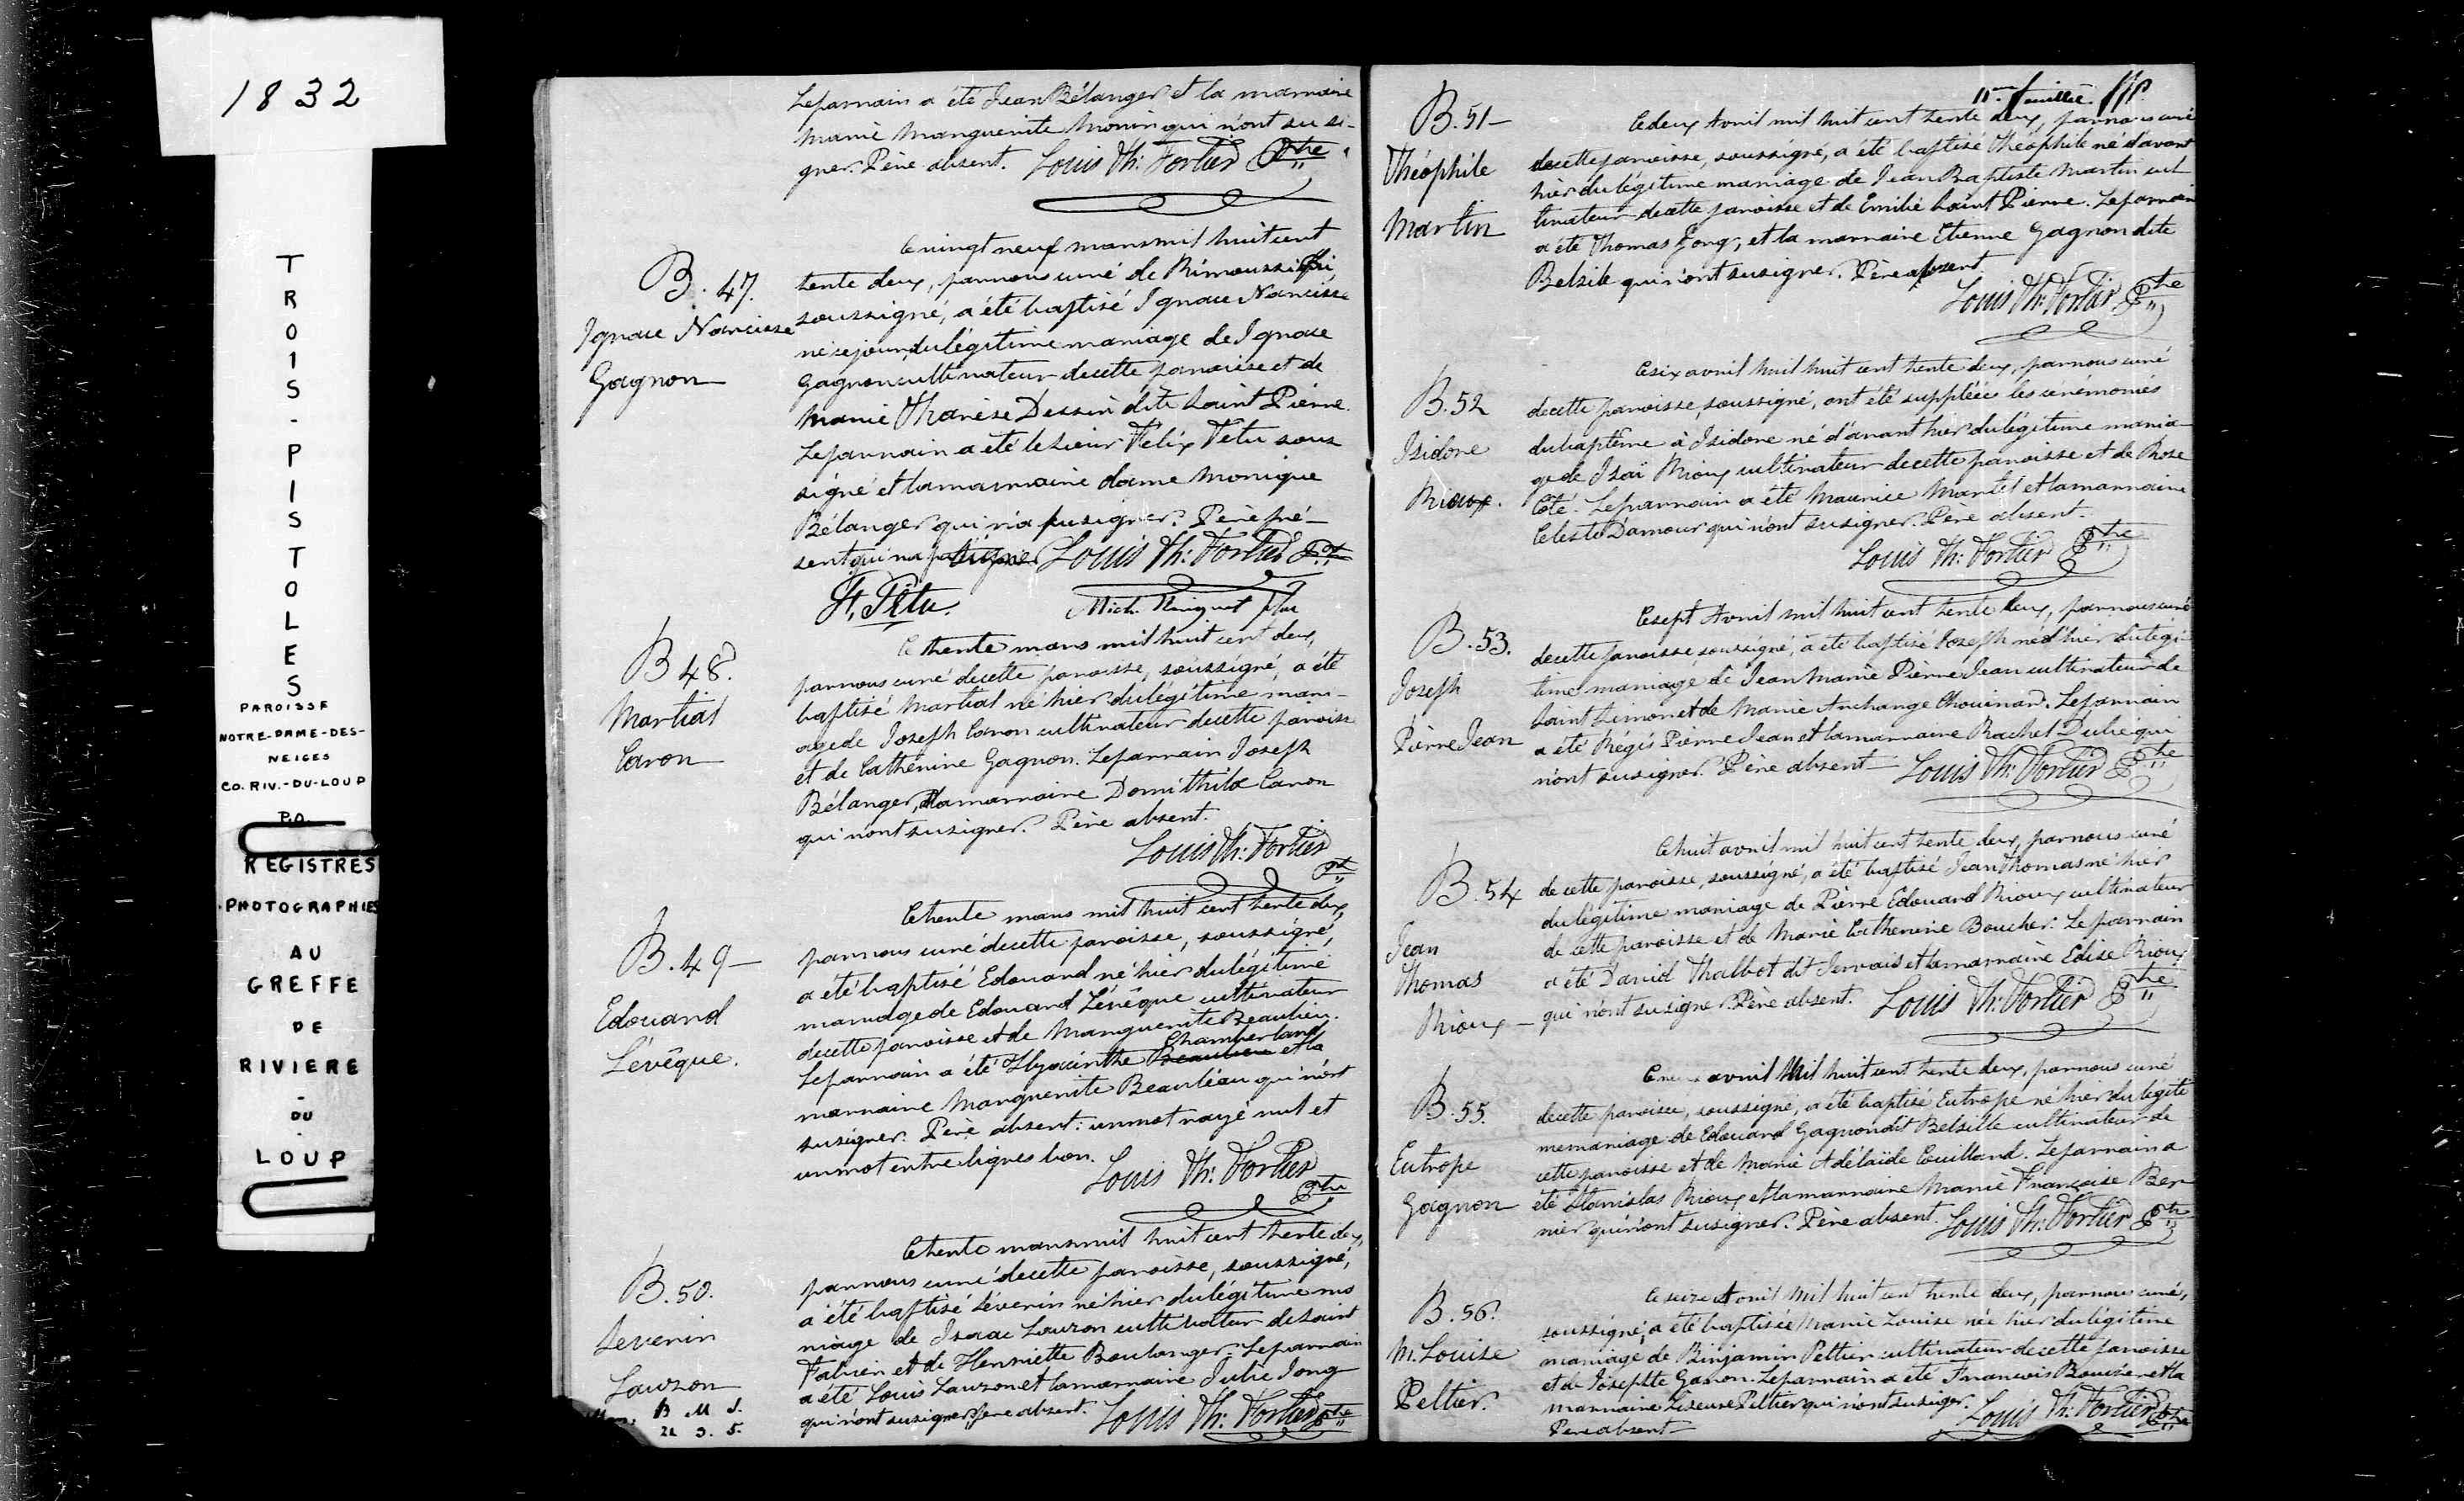 1832
TROIS-PISTOLES
PAROISSE
NOTRE-DAME-DES-
NEIGES
CO. RIV.-DU-LOUP
P.Q.
REGISTRES
PHOTOGRAPHIES
AU
GREFFE
DE
RIVIERE
-
DU
-
LOUP
Le parrain a été Jean Bélanger et la marraine
Marie Marguerite Morin qui n'ont su si-
gner. Père absent. Louis Th: Fortier Ptre
B. 47.
Ignace Narcisse
Gagnon
Le vingt neuf mars mil huit cent
trente deux, par nous curé de Rimouski
soussigné, a été baptisé Ignace Narcisse
né ce jour, du légitime mariage de Ignace
Gagnon cultivateur de cette paroisse et de
Marie Tharèse Dessin dite Saint Pierre.
Le parrain a été le sieur Felix Têtu sous
signé et la marraine dame Monique
Bélanger qui n'a pu signer. Père pré-
sent qui n'a pu signer Louis Th: Fortier Ptre
F. Têtu. Mich. Ringuet Ptre
B 48.
Martial
Caron
Le trente mars mil huit cent deux,
par nous curé de cette paroisse, soussigné, a été
baptisé Martial né hier du légitime mari-
age de Joseph Caron cultivateur de cette paroisse
et de Catherine Gagnon. Le parrain Joseph
Bélanger, et la marraine Domithilde Caron
qui n'ont su signer. Père absent.
Louis Th: Fortier
Ptre
B. 49-
Edouard
Lévêque.
Le trente mars mil huit cent trente deux,
par nous curé de cette paroisse, soussigné,
a été baptisé Edouard né hier du légitime
mariage de Edouard Lévêque cultivateur
de cette paroisse et de Marguerite Beaulieu.
Chamberland
Le parrain a été Hyacinthe Beaulieu et la
marraine Marguerite Beaulieu qui n'ont
su signer. Père absent: un mot rayé nul et
un mot entre lignes bon. Louis Th: Fortier
Ptre
B. 50.
Severin
Lauzon
B M S.
21 3. 5.
Le trente mars mil huit cent trente deux,
par nous curé de cette paroisse, soussigné,
a été baptisé Séverin né hier du légitime ma
riage de Isaac Lauzon cultivateur de Saint
Fabien et de Henriette Boulanger. Le parrain
a été Louis Lauzon et la marraine Julie Jong
qui n'ont su signer, père absent. Louis Th: Fortier Ptre
11me feuillet.
B. 51-
Théophile
Martin
Le deux Avril mil huit cent trente deux, par nous curé
de cette paroisse, soussigné, a été baptisé Théophile né d'avant
hier du légitime mariage de Jean Baptiste Martin cul
tivateur de cette paroisse et de Emilie Saint Pierre. Le parrain
a été Thomas Jong, et la marraine Etienne Gagnon dite
Belzile qui n'ont su signer. Père absent.
Louis Th: Fortier Ptre
B. 52
Isidore
Rioux.
Le six avril mil huit cent trente deux, par nous curé
de cette paroisse, soussigné, ont été suppléés les cérémonies
du baptême à Isidore né d'avant hier du légitime maria-
ge de Isaï Rioux cultivateur de cette paroisse et de Rose
Coté. Le parrain a été Maurice Martel et la marraine
Celeste D'amour qui n'ont su signer. Père absent.
Louis Th: Fortier Ptre
B. 53.
Joseph
Pierre Jean
Le sept Avril mil huit cent trente deux, par nous curé
de cette paroisse, soussigné, a été baptisé Joseph né d'hier du légi-
time mariage de Jean Marie Pierre Jean cultivateur de
Saint Simon et de Marie Archange Chouinard. Le parrain
a été Régis Pierre Jean et la marraine Rachel Dubé qui
n'ont su signer. Père absent- Louis Th: Fortier Ptre
B. 54
Jean
Thomas
Rioux-
Le huit avril mil huit cent trente deux, par nous curé
de cette paroisse, soussigné, a été baptisé Jean Thomas né hier
du légitime mariage de Pierre Edouard Rioux cultivateur
de cette paroisse et de Marie Catherine Boucher. Le parrain
a été David Thalbot dit Jervais et la marraine Edise Rioux
qui n'ont su signer. Père absent. Louis Th: Fortier Ptre
B. 55.
Eutrope
Gagnon
Le neuf avril Mil huit cent trente deux, par nous curé
de cette paroisse, soussigné, a été baptisé Eutrope né hier du légiti
me mariage de Edouard Gagnon dit Belsille cultivateur de
cette paroisse et de Marie Adélaïde Couillard. Le parrain a
été Stanislas Rioux et la marraine Marie Françoise Ber
nier qui n'ont su signer. Père absent. Louis Th: Fortier Ptre
B. 56.
M. Louise
Peltier.
Le seize Avril Mil huit cent trente deux, par nous curé,
soussigné, a été baptisée Marie Louise née hier du légitime
mariage de Binjamin Peltier cultivateur de cette paroisse
et de Josephte Gason. Le parrain a été François Boucher et la
marraine Liseuse Peltier qui n'ont su signer. Louis Th: Fortier Ptre
Père absent-